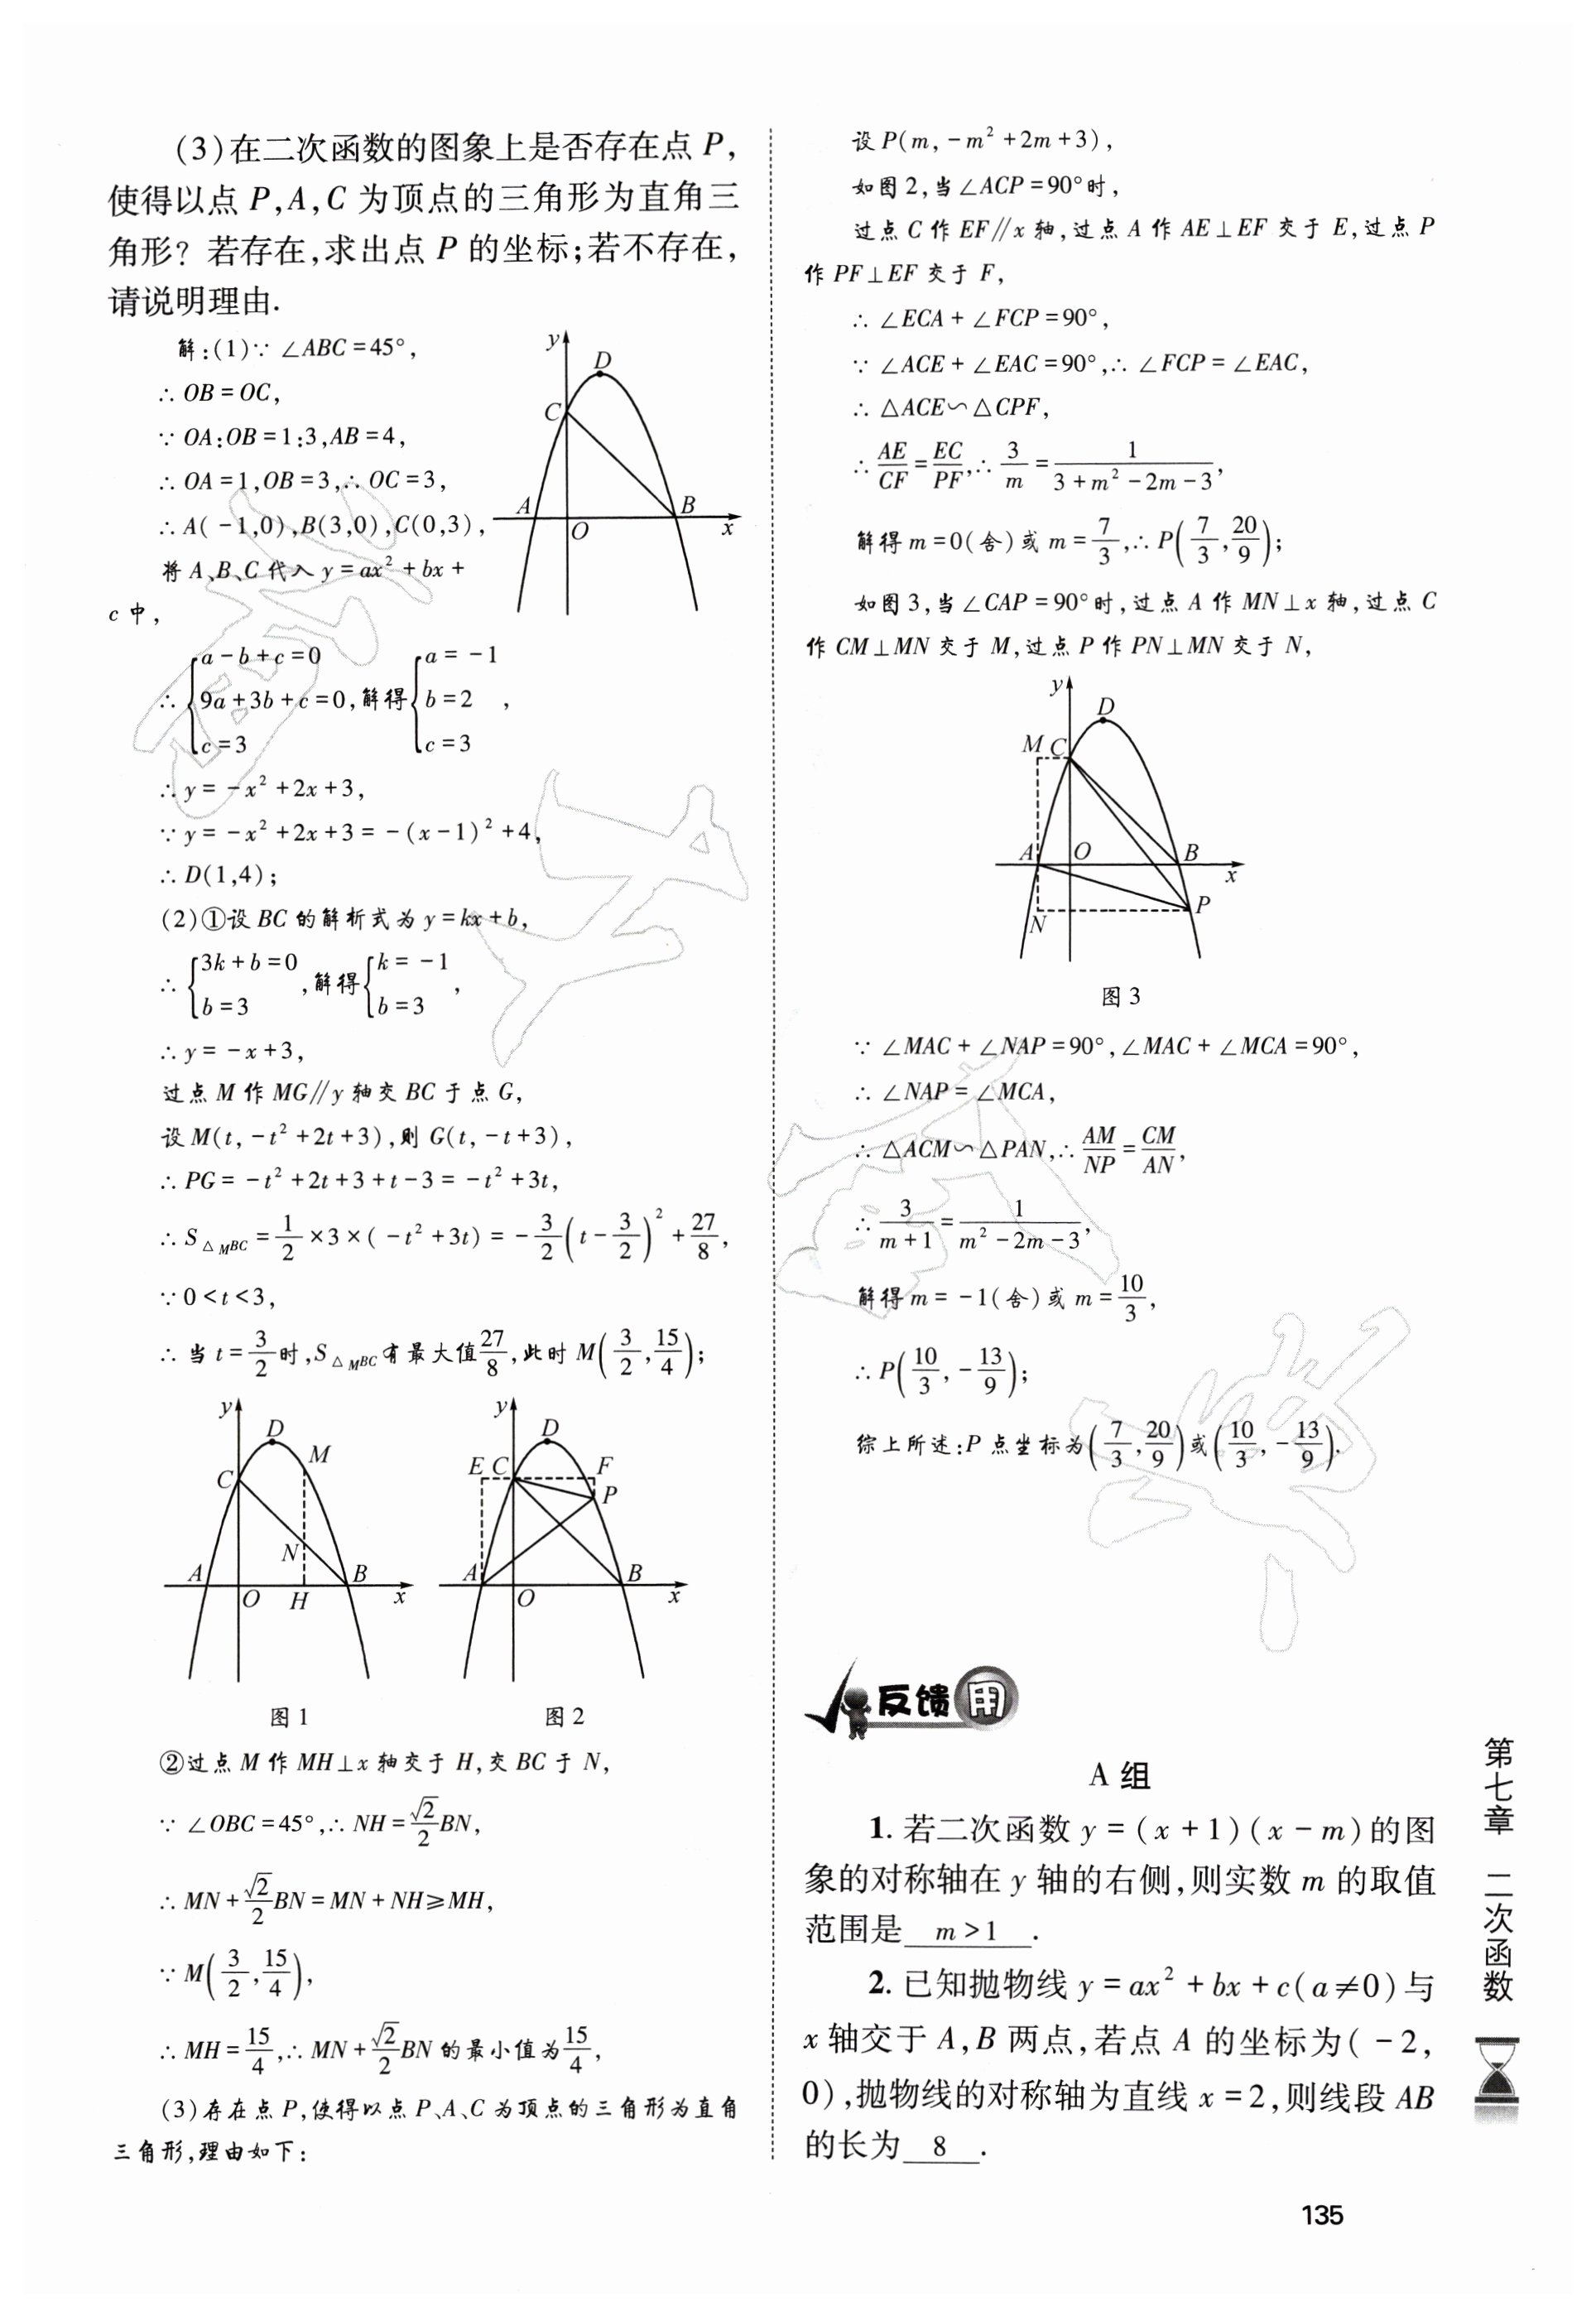 (3)在二次函数的图象上是否存在点 P,
使得以点 P,A,C 为顶点的三角形为直角三
角形？若存在,求出点 P 的坐标;若不存在,
请说明理由.
解:(1)∵ ∠ABC=45°,
∴ OB=OC,
∵ OA:OB=1:3,AB=4,
∴ OA=1,OB=3,∴ OC=3,
∴ A(-1,0),B(3,0),C(0,3),
将 A、B、C 代入 y=ax²+bx+
c 中,
∴ {a-b+c=0 9a+3b+c=0 c=3,解得{a=-1 b=2 c=3,
∴ y=-x²+2x+3,
∵ y=-x²+2x+3=-(x-1)²+4,
∴ D(1,4);
(2)①设 BC 的解析式为 y=kx+b,
∴ {3k+b=0 b=3,解得{k=-1 b=3,
∴ y=-x+3,
过点 M 作 MG∥y 轴交 BC 于点 G,
设 M(t,-t²+2t+3),则 G(t,-t+3),
∴ PG=-t²+2t+3+t-3=-t²+3t,
∴ S△MBC=1/2×3×(-t²+3t)=-3/2(t-3/2)²+27/8,
∵ 0<t<3,
∴ 当 t=3/2时,S△MBC有最大值27/8,此时 M(3/2,15/4);
y D C A O B x
y D M C N A O H B x
图 1
y D E C F P A O B x
图 2
②过点 M 作 MH⊥x 轴交于 H,交 BC 于 N,
∵ ∠OBC=45°,∴ NH=√2/2BN,
∴ MN+√2/2BN=MN+NH≥MH,
∵ M(3/2,15/4),
∴ MH=15/4,∴ MN+√2/2BN 的最小值为15/4,
(3)存在点 P,使得以点 P、A、C 为顶点的三角形为直角
三角形,理由如下:
设 P(m,-m²+2m+3),
如图 2,当∠ACP=90°时,
过点 C 作 EF∥x 轴,过点 A 作 AE⊥EF 交于 E,过点 P
作 PF⊥EF 交于 F,
∴ ∠ECA+∠FCP=90°,
∵ ∠ACE+∠EAC=90°,∴ ∠FCP=∠EAC,
∴ △ACE∽△CPF,
∴ AE/CF=EC/PF,∴ 3/m=1/(3+m²-2m-3),
解得 m=0(舍)或 m=7/3,∴ P(7/3,20/9);
如图 3,当∠CAP=90°时,过点 A 作 MN⊥x 轴,过点 C
作 CM⊥MN 交于 M,过点 P 作 PN⊥MN 交于 N,
y D M C A O B x P N
图 3
∵ ∠MAC+∠NAP=90°,∠MAC+∠MCA=90°,
∴ ∠NAP=∠MCA,
∴ △ACM∽△PAN,∴ AM/NP=CM/AN,
∴ 3/(m+1)=1/(m²-2m-3),
解得 m=-1(舍)或 m=10/3,
∴ P(10/3,-13/9);
综上所述:P 点坐标为(7/3,20/9)或(10/3,-13/9).
反馈用
A 组
1. 若二次函数 y=(x+1)(x-m)的图
象的对称轴在 y 轴的右侧,则实数 m 的取值
范围是 m>1 .
2. 已知抛物线 y=ax²+bx+c(a≠0)与
x 轴交于 A,B 两点,若点 A 的坐标为(-2,
0),抛物线的对称轴为直线 x=2,则线段 AB
的长为 8 .
第七章 二次函数
135